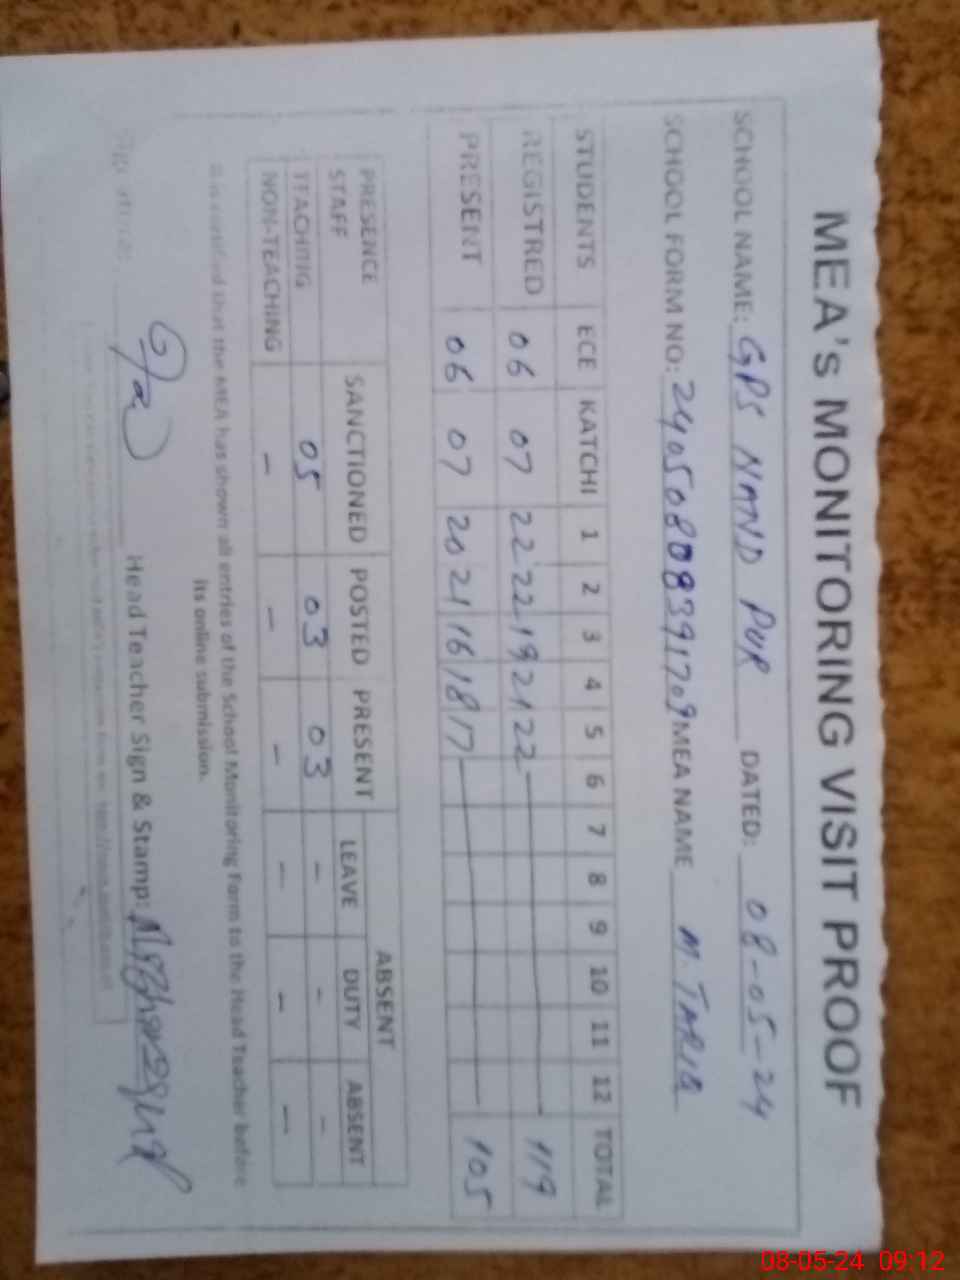 MEA's MONITORING VISIT PROOF
SCHOOL NAME: GPS NAND PUR DATED: 08-05-24
SCHOOL FORM NO: 24050808391709 MEA NAME M. TARIQ
STUDENTS ECE KATCHI 1 2 3 4 5 6 7 8 9 10 11 12 TOTAL
REGISTRED 06 07 22 22 19 21 22 119
PRESENT 06 07 20 21 16 18 17 105
PRESENCE STAFF SANCTIONED POSTED PRESENT ABSENT
LEAVE DUTY ABSENT
TEACHING 05 03 03 - - -
NON-TEACHING - - - - - -
It is certified that the MEA has shown all entries of the School Monitoring Form to the Head Teacher before
its online submission.
Signature: Head Teacher Sign & Stamp:
08-05-24 09:12